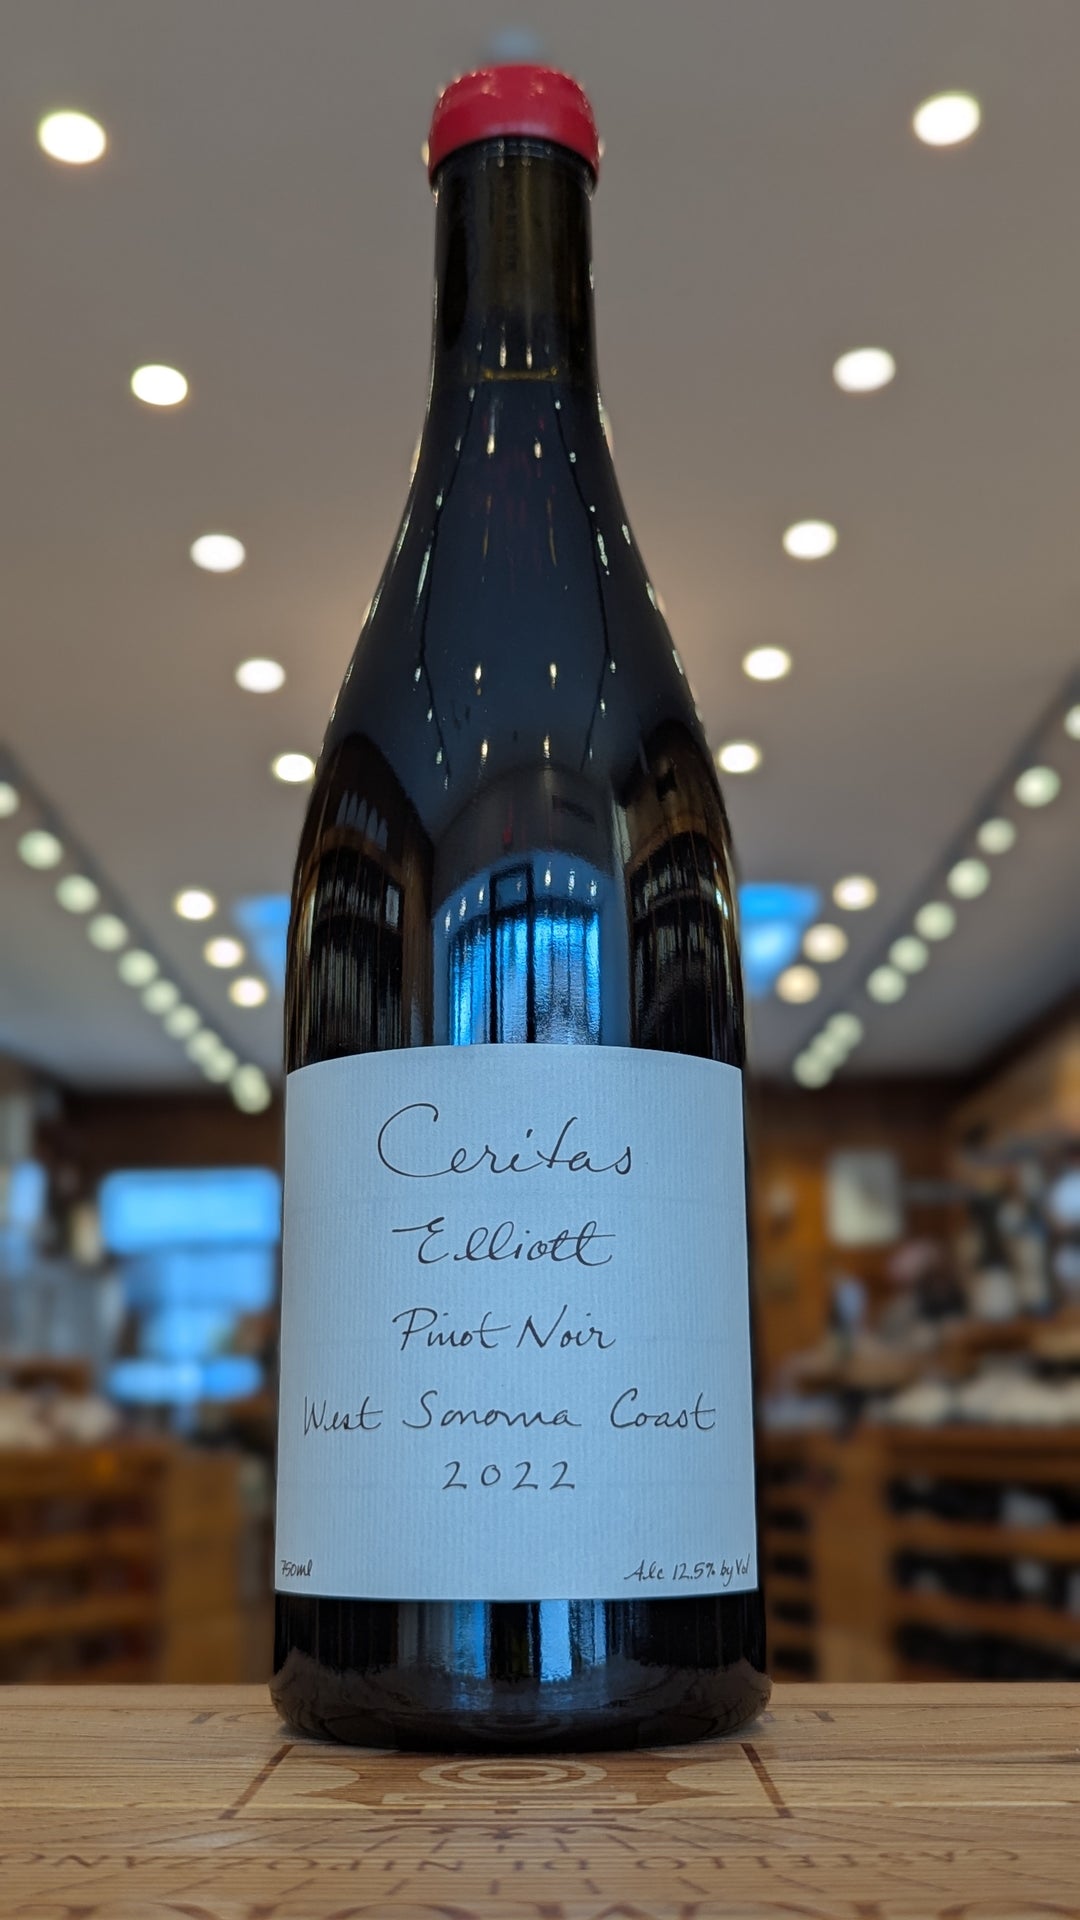 Ceritas
Elliott
Pinot Noir
West Sonoma Coast
2022
750ml
Alc 12.5% by Vol
CASTELLO DI NIPOZZANO